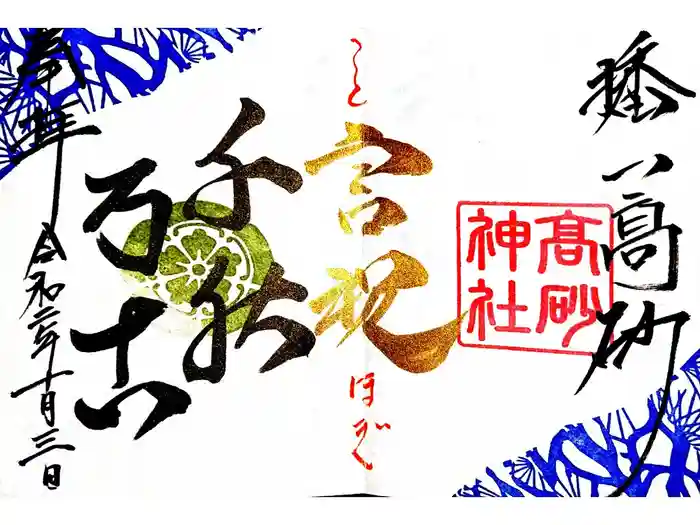 播州高砂
髙砂
神社
こと
言祝
ほぎ
千秋
万歳
奉拝
令和二年十月三日